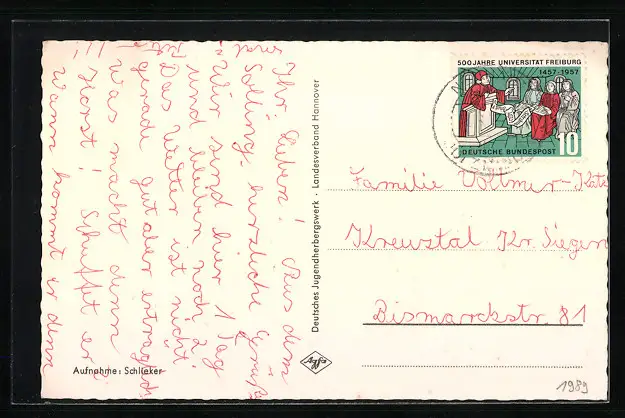 Ihr Lieben! Aus dem
Solling herzliche Grüße
Wir sind hier 1 Tag
und bleiben noch 2.
Das Wetter ist nicht
gerade gut aber erträglich
Was macht denn
Horst! Schufftet er
wann kommt er denn
!!!
Aufnahme: Schlieker
Deutsches Jugendherbergswerk · Landesverband Hannover
Agfa
500 JAHRE UNIVERSITÄT FREIBURG
1457-1957
DEUTSCHE BUNDESPOST 10
Familie Vollmer-
Kreuztal Kr. Siegen
Bismarckstr. 81
1989